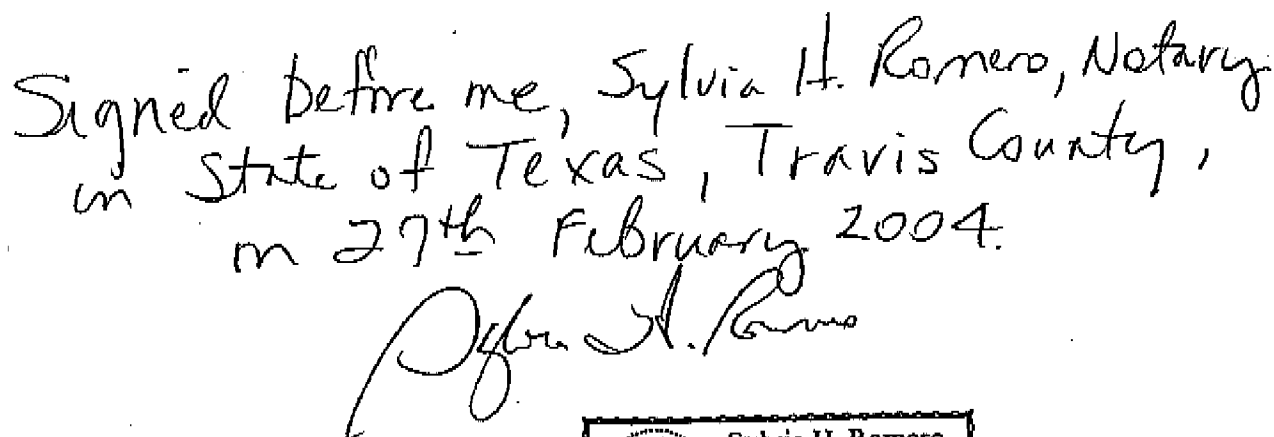 Signed before me, Sylvia H. Romero, Notary
in State of Texas, Travis County,
on 27th February 2004.
Sylvia H. Romero
Sylvia H. Romero